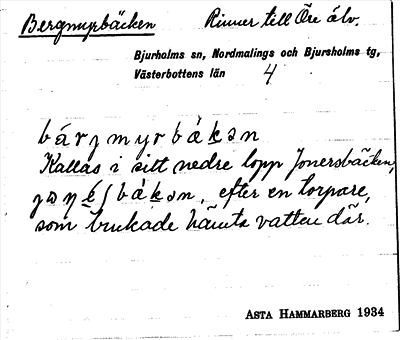 Bergmyrbäcken Rinner till Öre älv.
Bjurholms sn, Nordmalings och Bjursholms tg,
Västerbottens län 4
Kallas i sitt nedre lopp Jonersbäcken,
efter en torpare,
som brukade hämta vatten där.
ASTA HAMMARBERG 1934